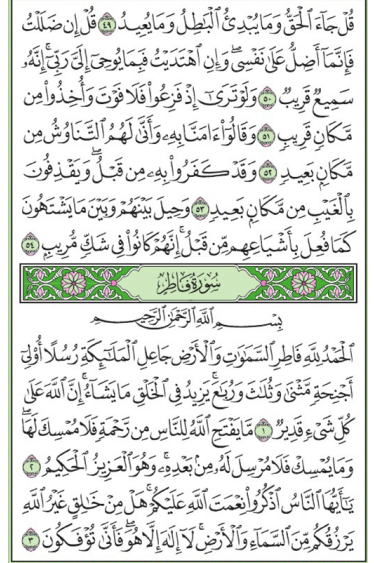 قُلْ جَآءَ ٱلْحَقُّ وَمَا يُبْدِئُ ٱلْبَٰطِلُ وَمَا يُعِيدُ ٤٩ قُلْ إِن ضَلَلْتُ
فَإِنَّمَآ أَضِلُّ عَلَىٰ نَفْسِى ۖ وَإِنِ ٱهْتَدَيْتُ فَبِمَا يُوحِىٓ إِلَىَّ رَبِّىٓ ۚ إِنَّهُۥ
سَمِيعٌ قَرِيبٌ ٥٠ وَلَوْ تَرَىٰٓ إِذْ فَزِعُوا۟ فَلَا فَوْتَ وَأُخِذُوا۟ مِن
مَّكَانٍ قَرِيبٍ ٥١ وَقَالُوٓا۟ ءَامَنَّا بِهِۦ وَأَنَّىٰ لَهُمُ ٱلتَّنَاوُشُ مِن
مَّكَانٍۭ بَعِيدٍ ٥٢ وَقَدْ كَفَرُوا۟ بِهِۦ مِن قَبْلُ ۖ وَيَقْذِفُونَ
بِٱلْغَيْبِ مِن مَّكَانٍۭ بَعِيدٍ ٥٣ وَحِيلَ بَيْنَهُمْ وَبَيْنَ مَا يَشْتَهُونَ
كَمَا فُعِلَ بِأَشْيَاعِهِم مِّن قَبْلُ ۚ إِنَّهُمْ كَانُوا۟ فِى شَكٍّ مُّرِيبٍۭ ٥٤
سُورَةُ فَاطِرٍ
بِسْمِ ٱللَّهِ ٱلرَّحْمَٰنِ ٱلرَّحِيمِ
ٱلْحَمْدُ لِلَّهِ فَاطِرِ ٱلسَّمَٰوَٰتِ وَٱلْأَرْضِ جَاعِلِ ٱلْمَلَٰٓئِكَةِ رُسُلًا أُو۟لِىٓ
أَجْنِحَةٍ مَّثْنَىٰ وَثُلَٰثَ وَرُبَٰعَ ۚ يَزِيدُ فِى ٱلْخَلْقِ مَا يَشَآءُ ۚ إِنَّ ٱللَّهَ عَلَىٰ
كُلِّ شَىْءٍ قَدِيرٌ ١ مَّا يَفْتَحِ ٱللَّهُ لِلنَّاسِ مِن رَّحْمَةٍ فَلَا مُمْسِكَ لَهَا ۖ
وَمَا يُمْسِكْ فَلَا مُرْسِلَ لَهُۥ مِنۢ بَعْدِهِۦ ۚ وَهُوَ ٱلْعَزِيزُ ٱلْحَكِيمُ ٢
يَٰٓأَيُّهَا ٱلنَّاسُ ٱذْكُرُوا۟ نِعْمَتَ ٱللَّهِ عَلَيْكُمْ ۚ هَلْ مِنْ خَٰلِقٍ غَيْرُ ٱللَّهِ
يَرْزُقُكُم مِّنَ ٱلسَّمَآءِ وَٱلْأَرْضِ ۚ لَآ إِلَٰهَ إِلَّا هُوَ ۖ فَأَنَّىٰ تُؤْفَكُونَ ٣